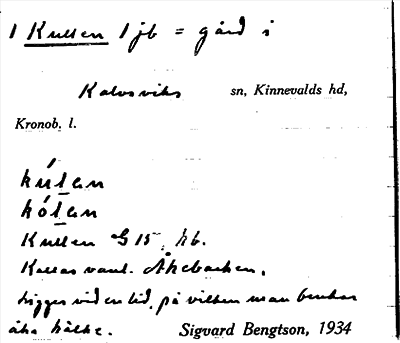 1 Kullen 1 jb = gård i
Kalvsviks sn, Kinnevalds hd,
Kronob. l.
kúlan
hólan
Kullen G 15 hb.
Kallas vanl. Åkebacken.
Ligger vid en lid, på vilken man brukar
åka kälke. Sigvard Bengtson, 1934